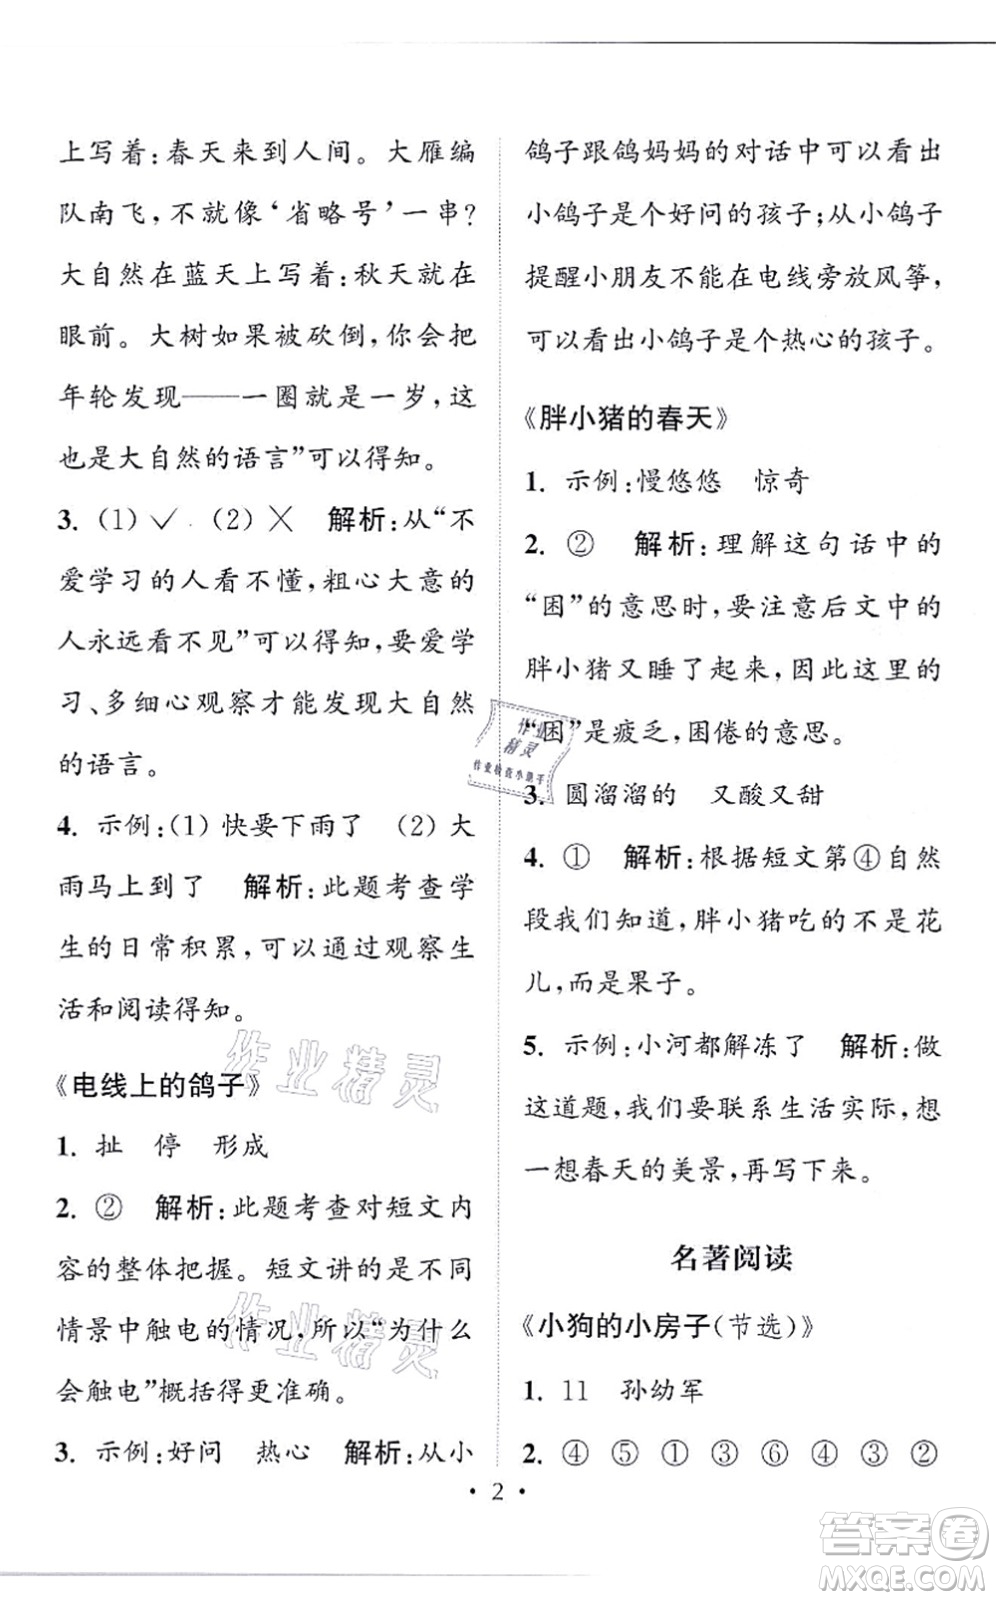 上写着:春天来到人间。大雁编
队南飞,不就像‘省略号’一串?
大自然在蓝天上写着:秋天就在
眼前。大树如果被砍倒,你会把
年轮发现——一圈就是一岁,这
也是大自然的语言”可以得知。
3. (1)✓ (2)✕ 解析:从“不
爱学习的人看不懂,粗心大意的
人永远看不见”可以得知,要爱学
习、多细心观察才能发现大自然
的语言。
4. 示例:(1)快要下雨了 (2)大
雨马上到了 解析:此题考查学
生的日常积累,可以通过观察生
活和阅读得知。
《电线上的鸽子》
1. 扯 停 形成
2. ② 解析:此题考查对短文内
容的整体把握。短文讲的是不同
情景中触电的情况,所以“为什么
会触电”概括得更准确。
3. 示例:好问 热心 解析:从小
鸽子跟鸽妈妈的对话中可以看出
小鸽子是个好问的孩子;从小鸽子
提醒小朋友不能在电线旁放风筝,
可以看出小鸽子是个热心的孩子。
《胖小猪的春天》
1. 示例:慢悠悠 惊奇
2. ② 解析:理解这句话中的
“困”的意思时,要注意后文中的
胖小猪又睡了起来,因此这里的
“困”是疲乏,困倦的意思。
3. 圆溜溜的 又酸又甜
4. ① 解析:根据短文第④自然
段我们知道,胖小猪吃的不是花
儿,而是果子。
5. 示例:小河都解冻了 解析:做
这道题,我们要联系生活实际,想
一想春天的美景,再写下来。
名著阅读
《小狗的小房子(节选)》
1. 11 孙幼军
2. ④ ⑤ ① ③ ⑥ ④ ③ ②
• 2 •
作业精灵
作业精灵
作业
精灵
作业检查小能手
答案卷
MXQE.COM